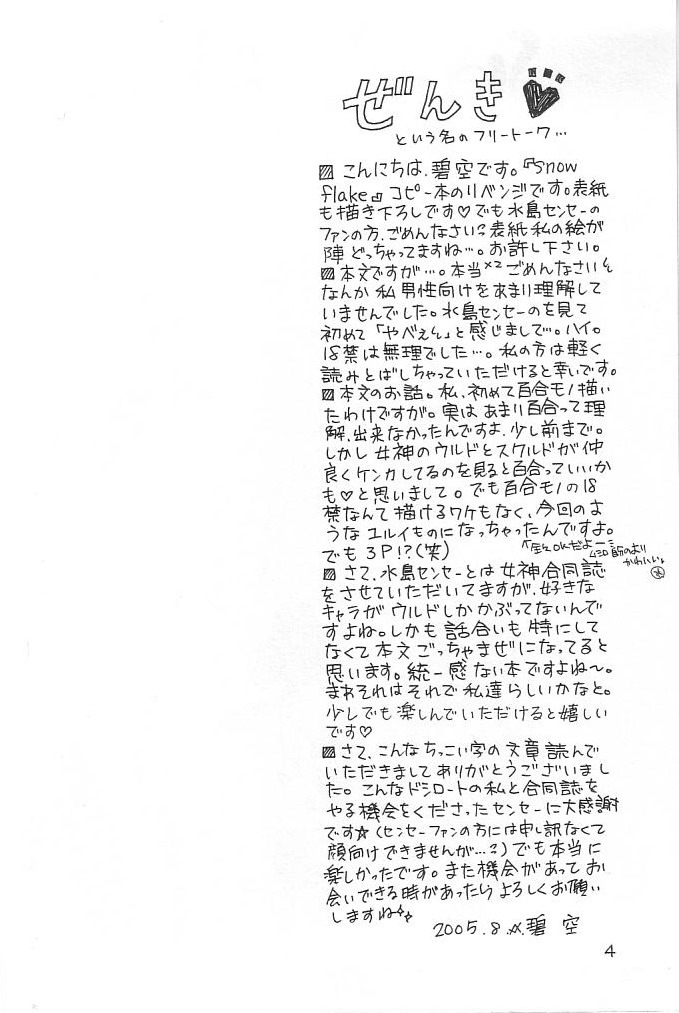 ぜんき♥
という名のフリートーク…
▨こんにちは、碧空です。『Snow
flake』コピー本のリベンジです。表紙
も描き下ろしです♡でも水島センセーの
ファンの方、ごめんなさい!?表紙私の絵が
陣どっちゃってますね…。お許し下さい。
▨本文ですが…。本当×2ごめんなさい
なんか私男性向けをあまり理解して
いませんでした。水島センセーのを見て
初めて「やべぇ」と感じまして…。ハイ。
18禁は無理でした…。私の方は軽く
読みとばしちゃっていただけると幸いです。
▨本文のお話。私、初めて百合モノ描い
たわけですが。実はあまり百合って理
解、出来なかったんですよ、少し前まで。
しかし女神のウルドとスクルドが仲
良くケンカしてるのを見ると百合っていいか
も♡と思いまして。でも百合モノの18
禁なんて描けるワケもなく、今回のよ
うなユルイものになっちゃったんですよ。
でも3P!?(笑)
OKだよー
のより
かわいい。
水
▨さて、水島センセーとは女神合同誌
をさせていただいてますが、好きな
キャラがウルドしかかぶってないんで
すよね。しかも話合いも特にして
なくて本文ごっちゃまぜになってると
思います。統一感ない本ですよね〜。
まぁそれはそれで私達らしいかなと。
少しでも楽しんでいただけると嬉しい
です♡
▨さて、こんなちっこい字の文章読んで
いただきましてありがとうございまし
た。こんなドシロートの私と合同誌を
やる機会をくださったセンセーに大感謝
です☆(センセーファンの方には申し訳なくて
顔向けできませんが…)でも本当に
楽しかったです。また機会があってお
会いできる時があったらよろしくお願い
しますね
2005.8.☆.碧空
4